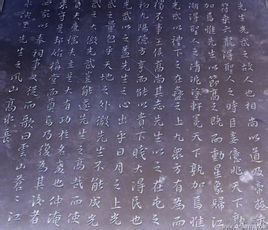 先生光武之故人也相尚以道及帝握赤
符乘六龍得聖人之時臣妾億兆天下孰
加焉惟先生以節高之既而動星象歸江
湖得聖人之清泥塗軒冕天下孰加焉惟
光武以禮下之在蠱之上九眾方有為而
獨不事王侯高尚其事先生以之在屯之
初九陽德方亨而能以貴下賤大得民也
光武以之蓋先生之心出乎日月之上光
武之量包乎天地之外微先生不能成光
武之大微光武豈能遂先生之高哉而使
貪夫廉懦夫立是大有功於名教也仲淹
來守是邦始構堂而奠焉乃復為其後者
家以奉祠事又從而歌曰雲山蒼蒼江
水 先生之風山高水長